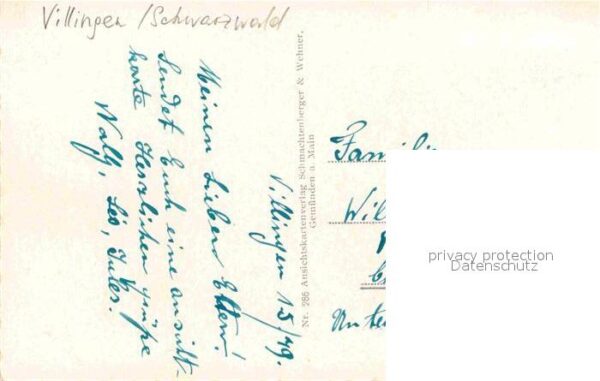 Villingen /Schwarzwald
Villingen 15/49.
Meinen lieben Eltern!
Sendet Euch eine Ansicht-
karte Herzlichen grüße
Wally, Leo, Jules.
Nr. 286 Ansichtskartenverlag Schmachtenberger & Wehner,
Gemünden a. Main
Familie
Wil
Unte
privacy protection
Datenschutz